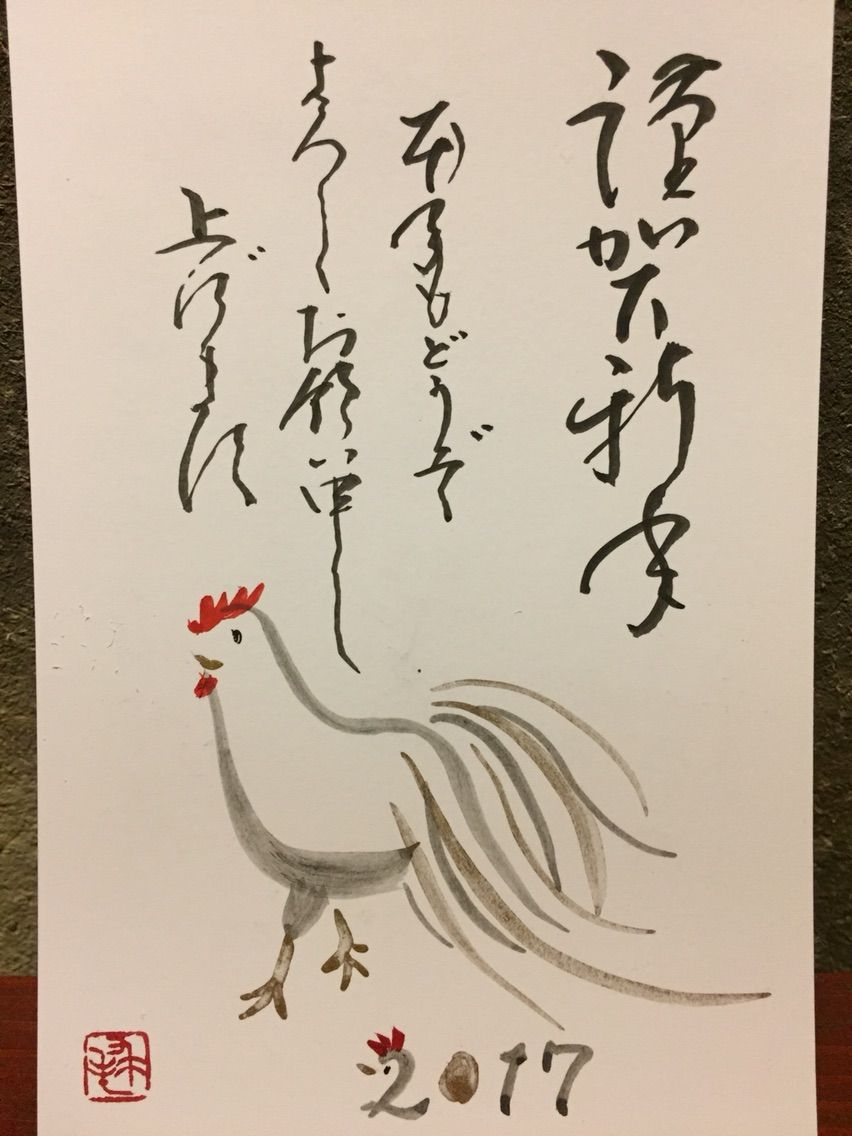 謹賀新年
本年もどうぞ
よろしくお願い申し
上げます
2017